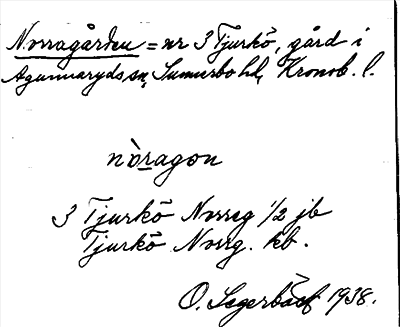 Norragården = nr 3 Tjurkö, gård i
Agunnaryds sn, Sunnerbo hd, Kronob. l.
nòragon
3 Tjurkö Norreg 1/2 jb
Tjurkö Norrg. kb.
O. Segerbäck 1938.